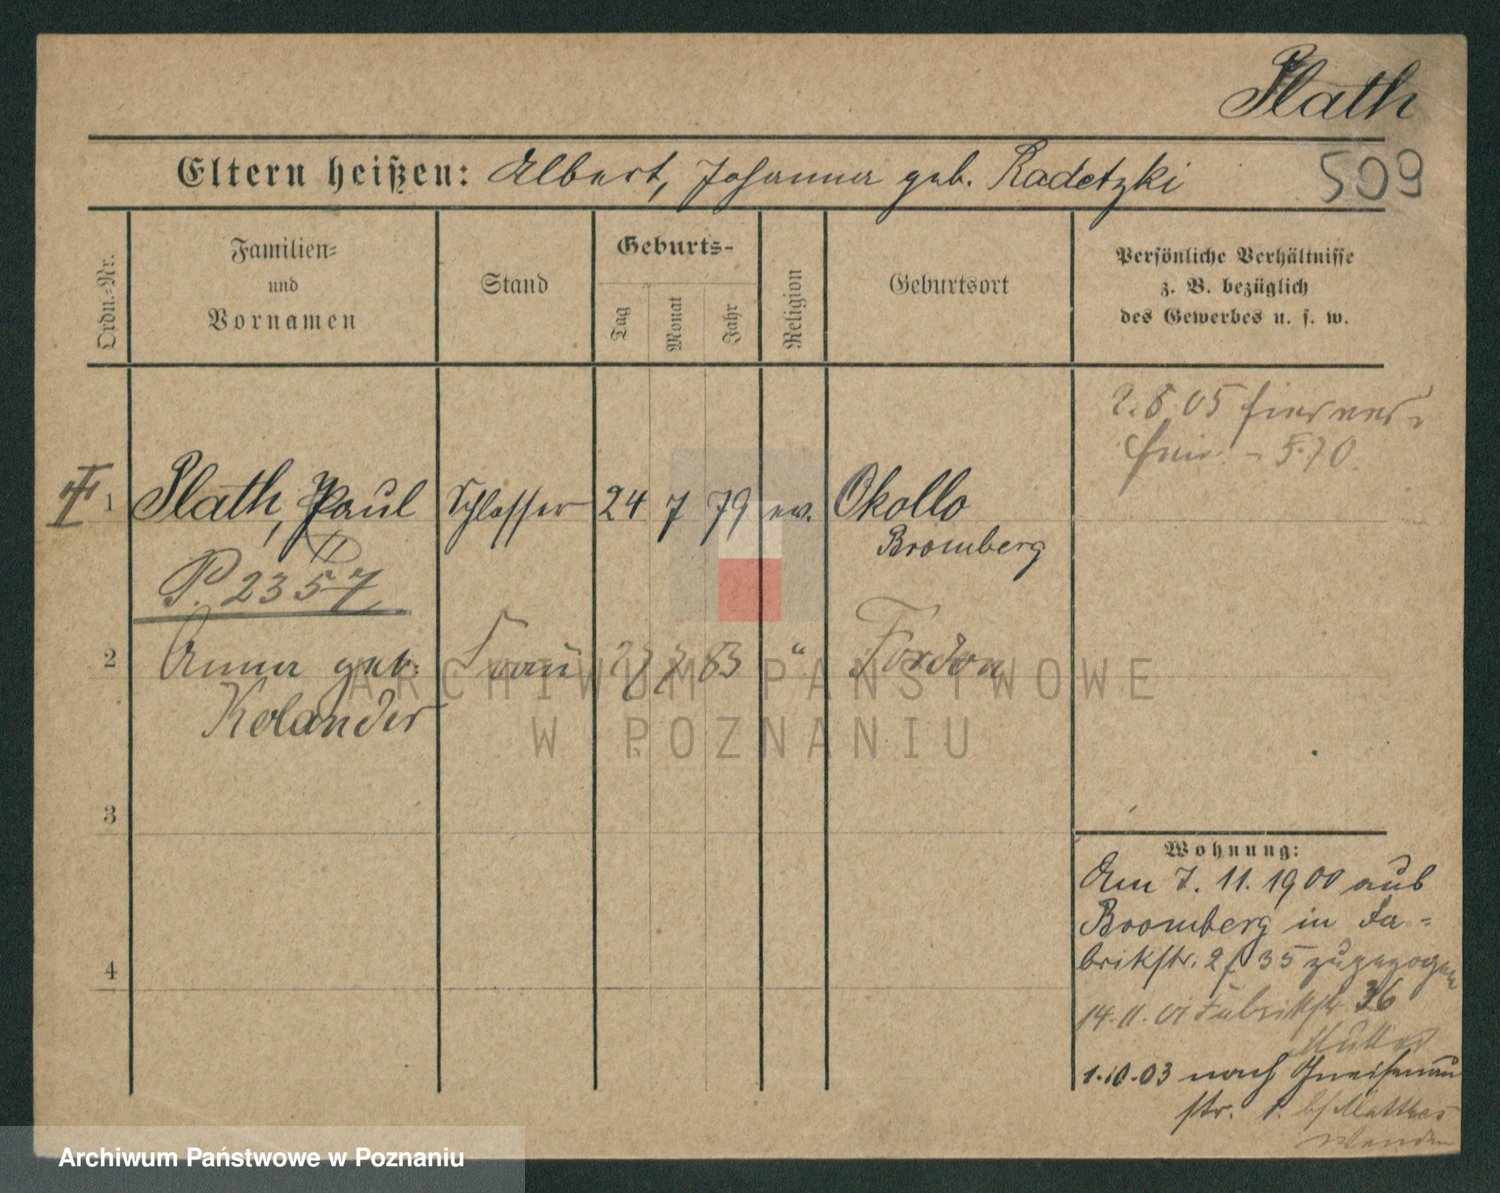 Plath
Eltern heißen: Albert, Johanna geb. Radetzki
509
Ordn.-Nr.
Familien- und Vornamen
Stand
Geburts-
Tag
Monat
Jahr
Religion
Geburtsort
Persönliche Verhältnisse
z. B. bezüglich
des Gewerbes u. s. w.
1 Plath, Paul Schlosser 24 7 79 ev. Okollo
Bromberg
P. 2357
2 Anna geb. Frau 83 " Fordon
Kolander
3
4
Wohnung:
Am 7. 11. 1900 aus
Bromberg in Fa-
brikstr. 35 zugezogen
14.11.01 Fabrikstr. 36
Mutter
1.10.03 nach Gneisenau
str. 1. b/ Matthes
ARCHIWUM PAŃSTWOWE
W POZNANIU
Archiwum Państwowe w Poznaniu